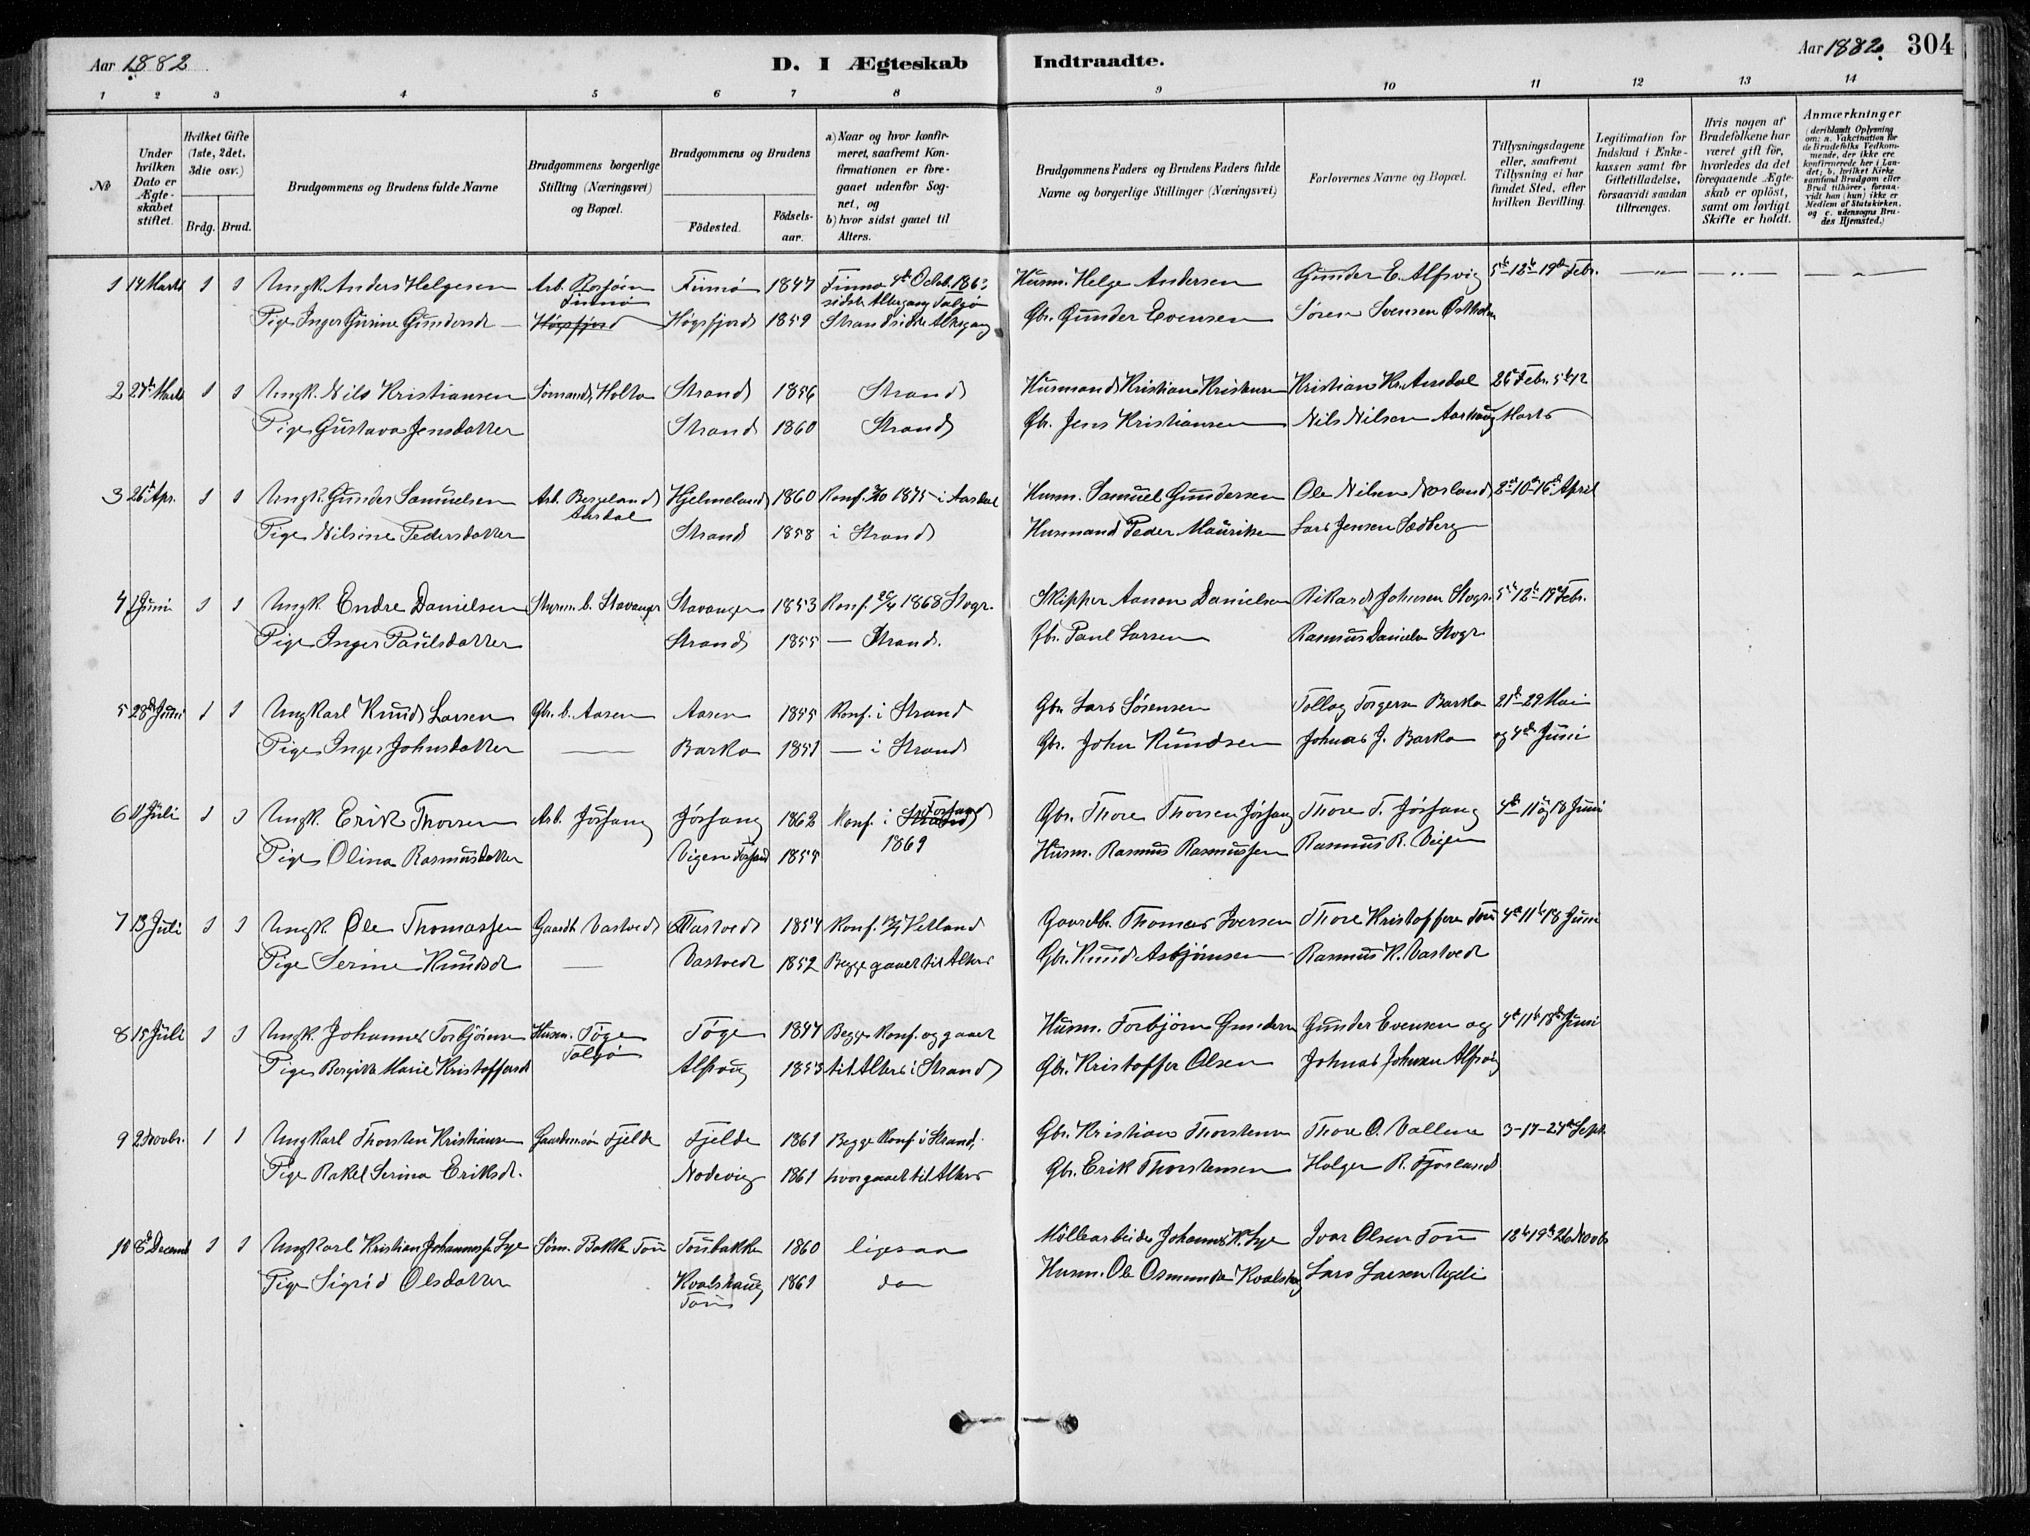 Aar 1882
D. I Ægteskab Indtraadte.
Aar 1882. 304
1 2 3 4 5 6 7 8 9 10 11 12 13 14
No
Under hvilken Dato er Ægteskabet stiftet.
Hvilket Gifte (1ste, 2det, 3die osv.)
Brdg. Brud.
Brudgommens og Brudens fulde Navne
Brudgommens borgerlige Stilling (Næringsvei) og Bopæl.
Brudgommens og Brudens
Fødested.
Fødselsaar.
a) Naar og hvor konfirmeret, saafremt Konfirmationen er foregaaet udenfor Sognet, og
b) hvor sidst gaaet til Alters.
Brudgommens Faders og Brudens Faders fulde Navne og borgerlige Stillinger (Næringsvei)
Forlovernes Navne og Bopæl.
Tillysningsdagene eller, saafremt Tillysning ei har fundet Sted, efter hvilken Bevilling.
Legitimation for Indskud i Enkekassen samt for Giftetilladelse, forsaavidt saadan tiltrænges.
Hvis nogen af Brudefolkene har været gift før, hvorledes da det foregaaende Ægteskab er opløst, samt om lovligt Skifte er holdt.
Anmærkninger
(deriblandt Oplysning om: a. Vakcination for de Brudefolks Vedkommende, der ikke ere konfirmerede her i Landet; b. hvilket Kirkesamfund Brudgom eller Brud tilhører, forsaavidt han (hun) ikke er Medlem af Statskirken, og c. udensogns Brudes Hjemsted.)
1 14 Marts 1 1 Ungk. Anders Helgesen Arb. Finnø Finnø 1847 Finnø 4de Octob. 186 Husm. Helge Andersen Gunder E. Alfsvig 5te 12te 19de Febr.
sidste Altergang Talgø
Pige Inger Gurine Gundersd Høgsfjord Høgsfjord 1859 Strand sidste Altergang Gbr. Gunder Evensen Søren Svensen
2 27de Marts 1 1 Ungk. Nils Kristiansen Sømand, Holta Strand 1856 Strand Husmand Kristian Kristensen Kristian Kr. Aasdal 26de Febr. 5te 12
Pige Gustava Jensdatter Strand 1860 Strand Gbr. Jens Kristiansen Nils Nilsen Marts
3 26de Apr. 1 1 Ungk. Gunder Samuelsen Arb. Bergeland Aardal Hjelmeland 1860 Konf. 1875 i Aardal Husm. Samuel Gundersen Ole Nilsen 2de 10de 16de April
Pige Nilsine Pedersdatter Strand 1858 i Strand Husmand Peder Mauritsen Lars Jensen Sedberg
4 1 Juni 1 1 Ungk. Endre Danielsen Styrm. b. Stavanger Stavanger 1853 Konf. 1868 Stvgr. Skipper Aanon Danielsen Rikard Johnsen Stvgr. 5te 12te 19de Febr.
Pige Inger Paulsdatter Strand 1855 — Strand. Gbr. Paul Larsen Rasmus Danielsen Stvgr
5 28de Juni 1 1 Ungkarl Knud Larsen Gbr. b. Aasen Aasen 1855 Konf. i Strand Gbr. Lars Sørensen Tollag Torgersen Barka 21de 29 Mai
Pige Inger Johnsdatter — Barka 1851 — i Strand Gbr. John Knudsen Johnas J. Barka og 4de Juni
6 11 Juli 1 1 Ungk. Erik Thorsen Arb. Jøssang Jøssang 1862 Konf. i Strand Forsand Gbr. Thore Thorsen Jøssang Thore T. Jøssang 4de 11te og 18 Juni
Pige Olina Rasmusdatter Vigen Forsand 1855 1869 Husm. Rasmus Rasmussen Rasmus R. Vigen
7 13 Juli 1 1 Ungk. Ole Thomassen Gaardb. Tastvedt 1854 Konf. Hetland Gaardbr. Thomas Iversen Thore Kristoffersen Tou 4de 11te 18 Juni
Pige Serine Knudsd — Vastvedt 1852 Begge gaaet til Alters Gbr. Knud Asbjørnsen Rasmus K. Vastvedt
8 15 Juli 1 1 Ungk. Johannes Torbjørnsen Husm. Tøge Talgø Tøge 1847 Begge Konf. og gaaet Husm. Torbjørn Gundersen Gunder Evensen og 4de 11te 18de Juni
Pige Bergitte Marie Kristoffersd Alfsvig 1853 til Alters i Strand Gbr. Kristoffer Olsen Johnas Johnsen Alfsvig
9 2 Novbr. 1 1 Ungkarl Thorsten Kristiansen Gaardmansøn Fjelde Fjelde 1861 Begge Konf. i Strand, Gbr. Kristian Thorstensen Thore O. Vallene 3-17-24de Sept.
Pige Rakel Serina Eriksdr. Nordvig 1861 hvor gaaet til Alters Gbr. Erik Thorstensen Holger R.
10 8de Decemb 1 1 Ungkarl Kristian Johannesen Lye Søm. Bakke Tou Toubakke 1860 ligesaa Møllearbeider Johannes K. Lye Ivar Olsen Tou 12te 19de 26 Novbr
Pige Sigrid Olsdatter Kvalshaug Tou 1861 do Husm. Ole Osmundsen Kvalshaug Lars Larsen